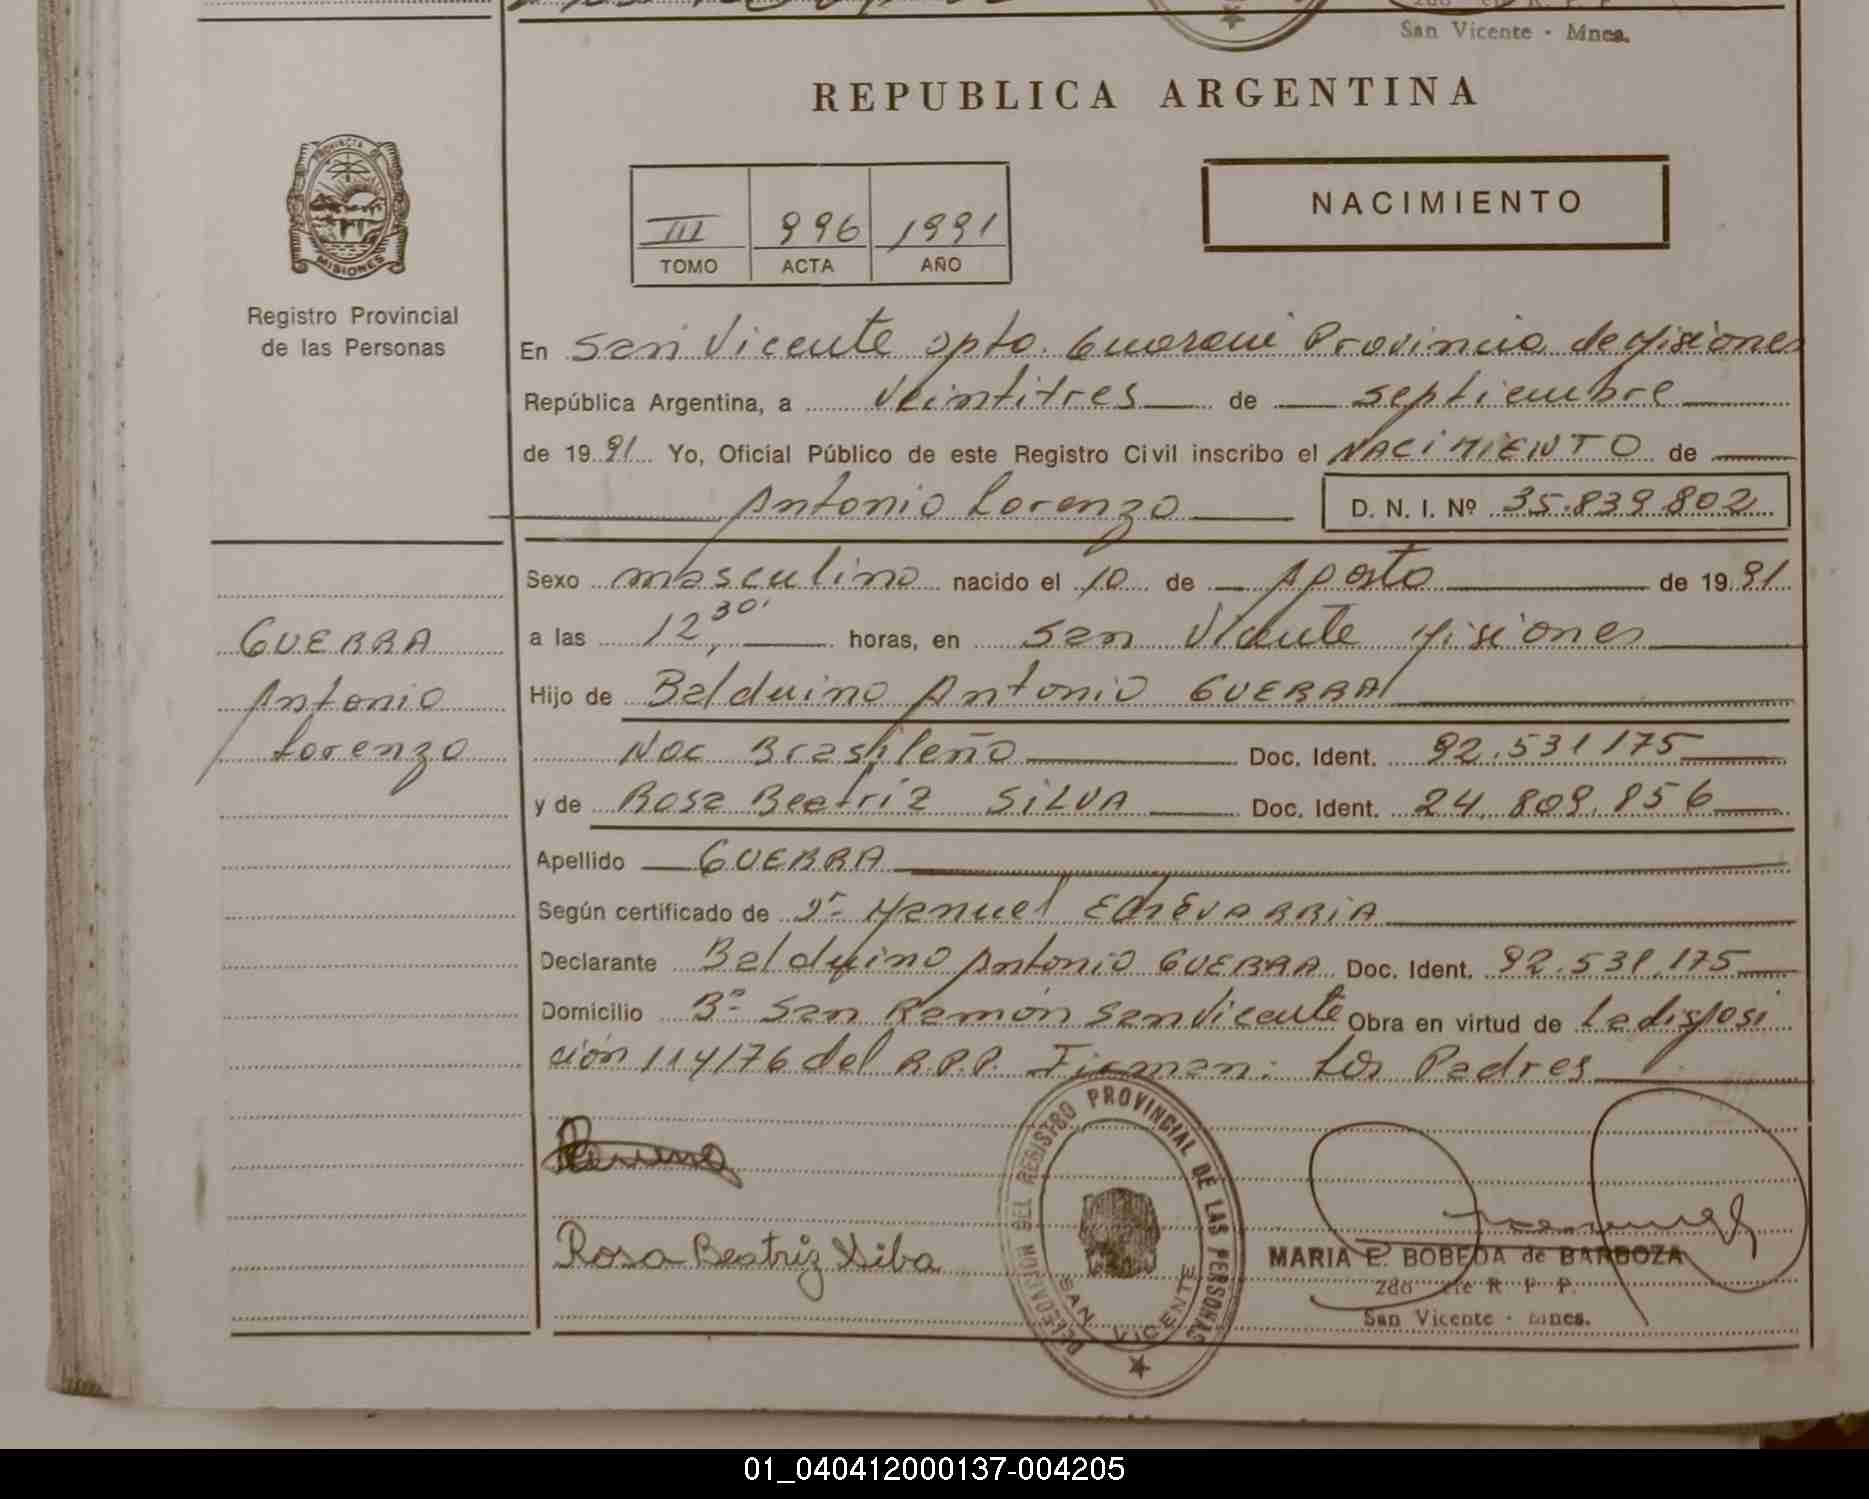 San Vicente - Mnes.
REPUBLICA ARGENTINA
PROVINCIA DE
MISIONES
Registro Provincial
de las Personas
III 996 1991
TOMO ACTA AÑO
NACIMIENTO
En San Vicente Dpto. Guarani Provincia de Misiones
República Argentina, a veintitres de septiembre
de 1991 Yo, Oficial Público de este Registro Civil inscribo el NACIMIENTO de
Antonio Lorenzo D. N. I. Nº 35.839.802
Sexo masculino nacido el 10 de Agosto de 1991
a las 12,30' horas, en San Vicente Misiones
Hijo de Balduino Antonio GUERRA
Nac Brasileño Doc. Ident. 92.531.175
y de Rosa Beatriz SILVA Doc. Ident. 24.809.856
Apellido GUERRA
Según certificado de Dr. Manuel ECHEVARRIA
Declarante Balduino Antonio GUERRA Doc. Ident. 92.531.175
Domicilio Bº San Ramón San Vicente Obra en virtud de La disposi
ción 114/76 del R.P.P. Firman: Los Padres
GUERRA
Antonio
Lorenzo
Rosa Beatriz Silva
DELEGACION DEL REGISTRO PROVINCIAL DE LAS PERSONAS
SAN VICENTE
MARIA E. BOBEDA de BARBOZA
2do R. P. P.
San Vicente - Mnes.
01_040412000137-004205